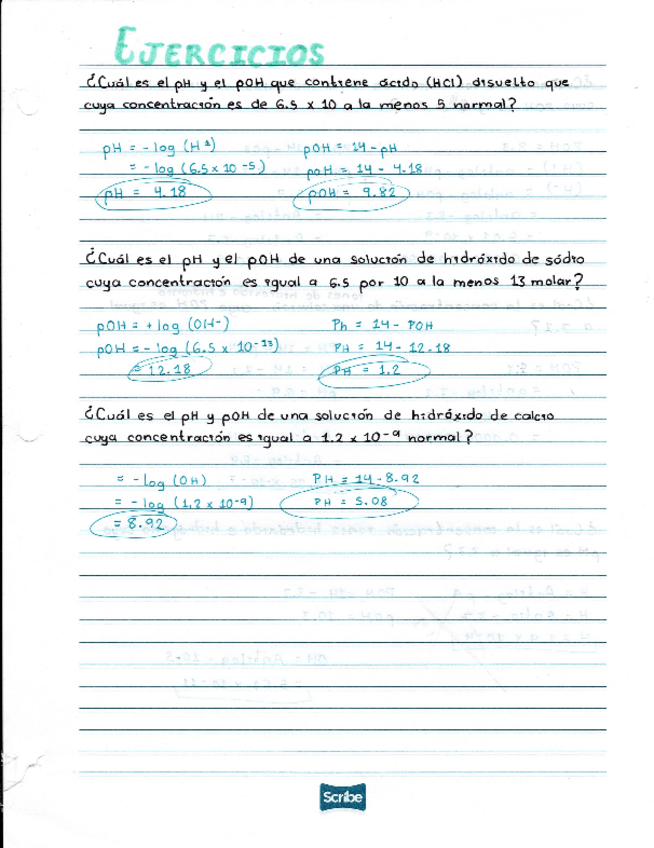 EJERCICIOS
¿Cuál es el pH y el pOH que contiene ácido (HCl) disuelto que
cuya concentración es de 6.5 x 10 a la menos 5 normal?
pH = - log (H⁺) pOH = 14 - pH
= - log (6.5 x 10 ⁻⁵) poH = 14 - 4.18
pH = 4.18 pOH = 9.82
¿Cuál es el pH y el pOH de una solución de hidróxido de sódio
cuya concentración es igual a 6.5 por 10 a la menos 13 molar?
pOH = + log (OH⁻) Ph = 14 - POH
pOH = - log (6.5 x 10⁻¹³) PH = 14 - 12.18
= 12.18 PH = 1.2
¿Cuál es el pH y pOH de una solución de hidróxido de calcio
cuya concentración es igual a 1.2 x 10⁻⁹ normal?
= - log (OH) PH = 14 - 8.92
= - log (1.2 x 10⁻⁹) PH = 5.08
= 8.92
Scribe